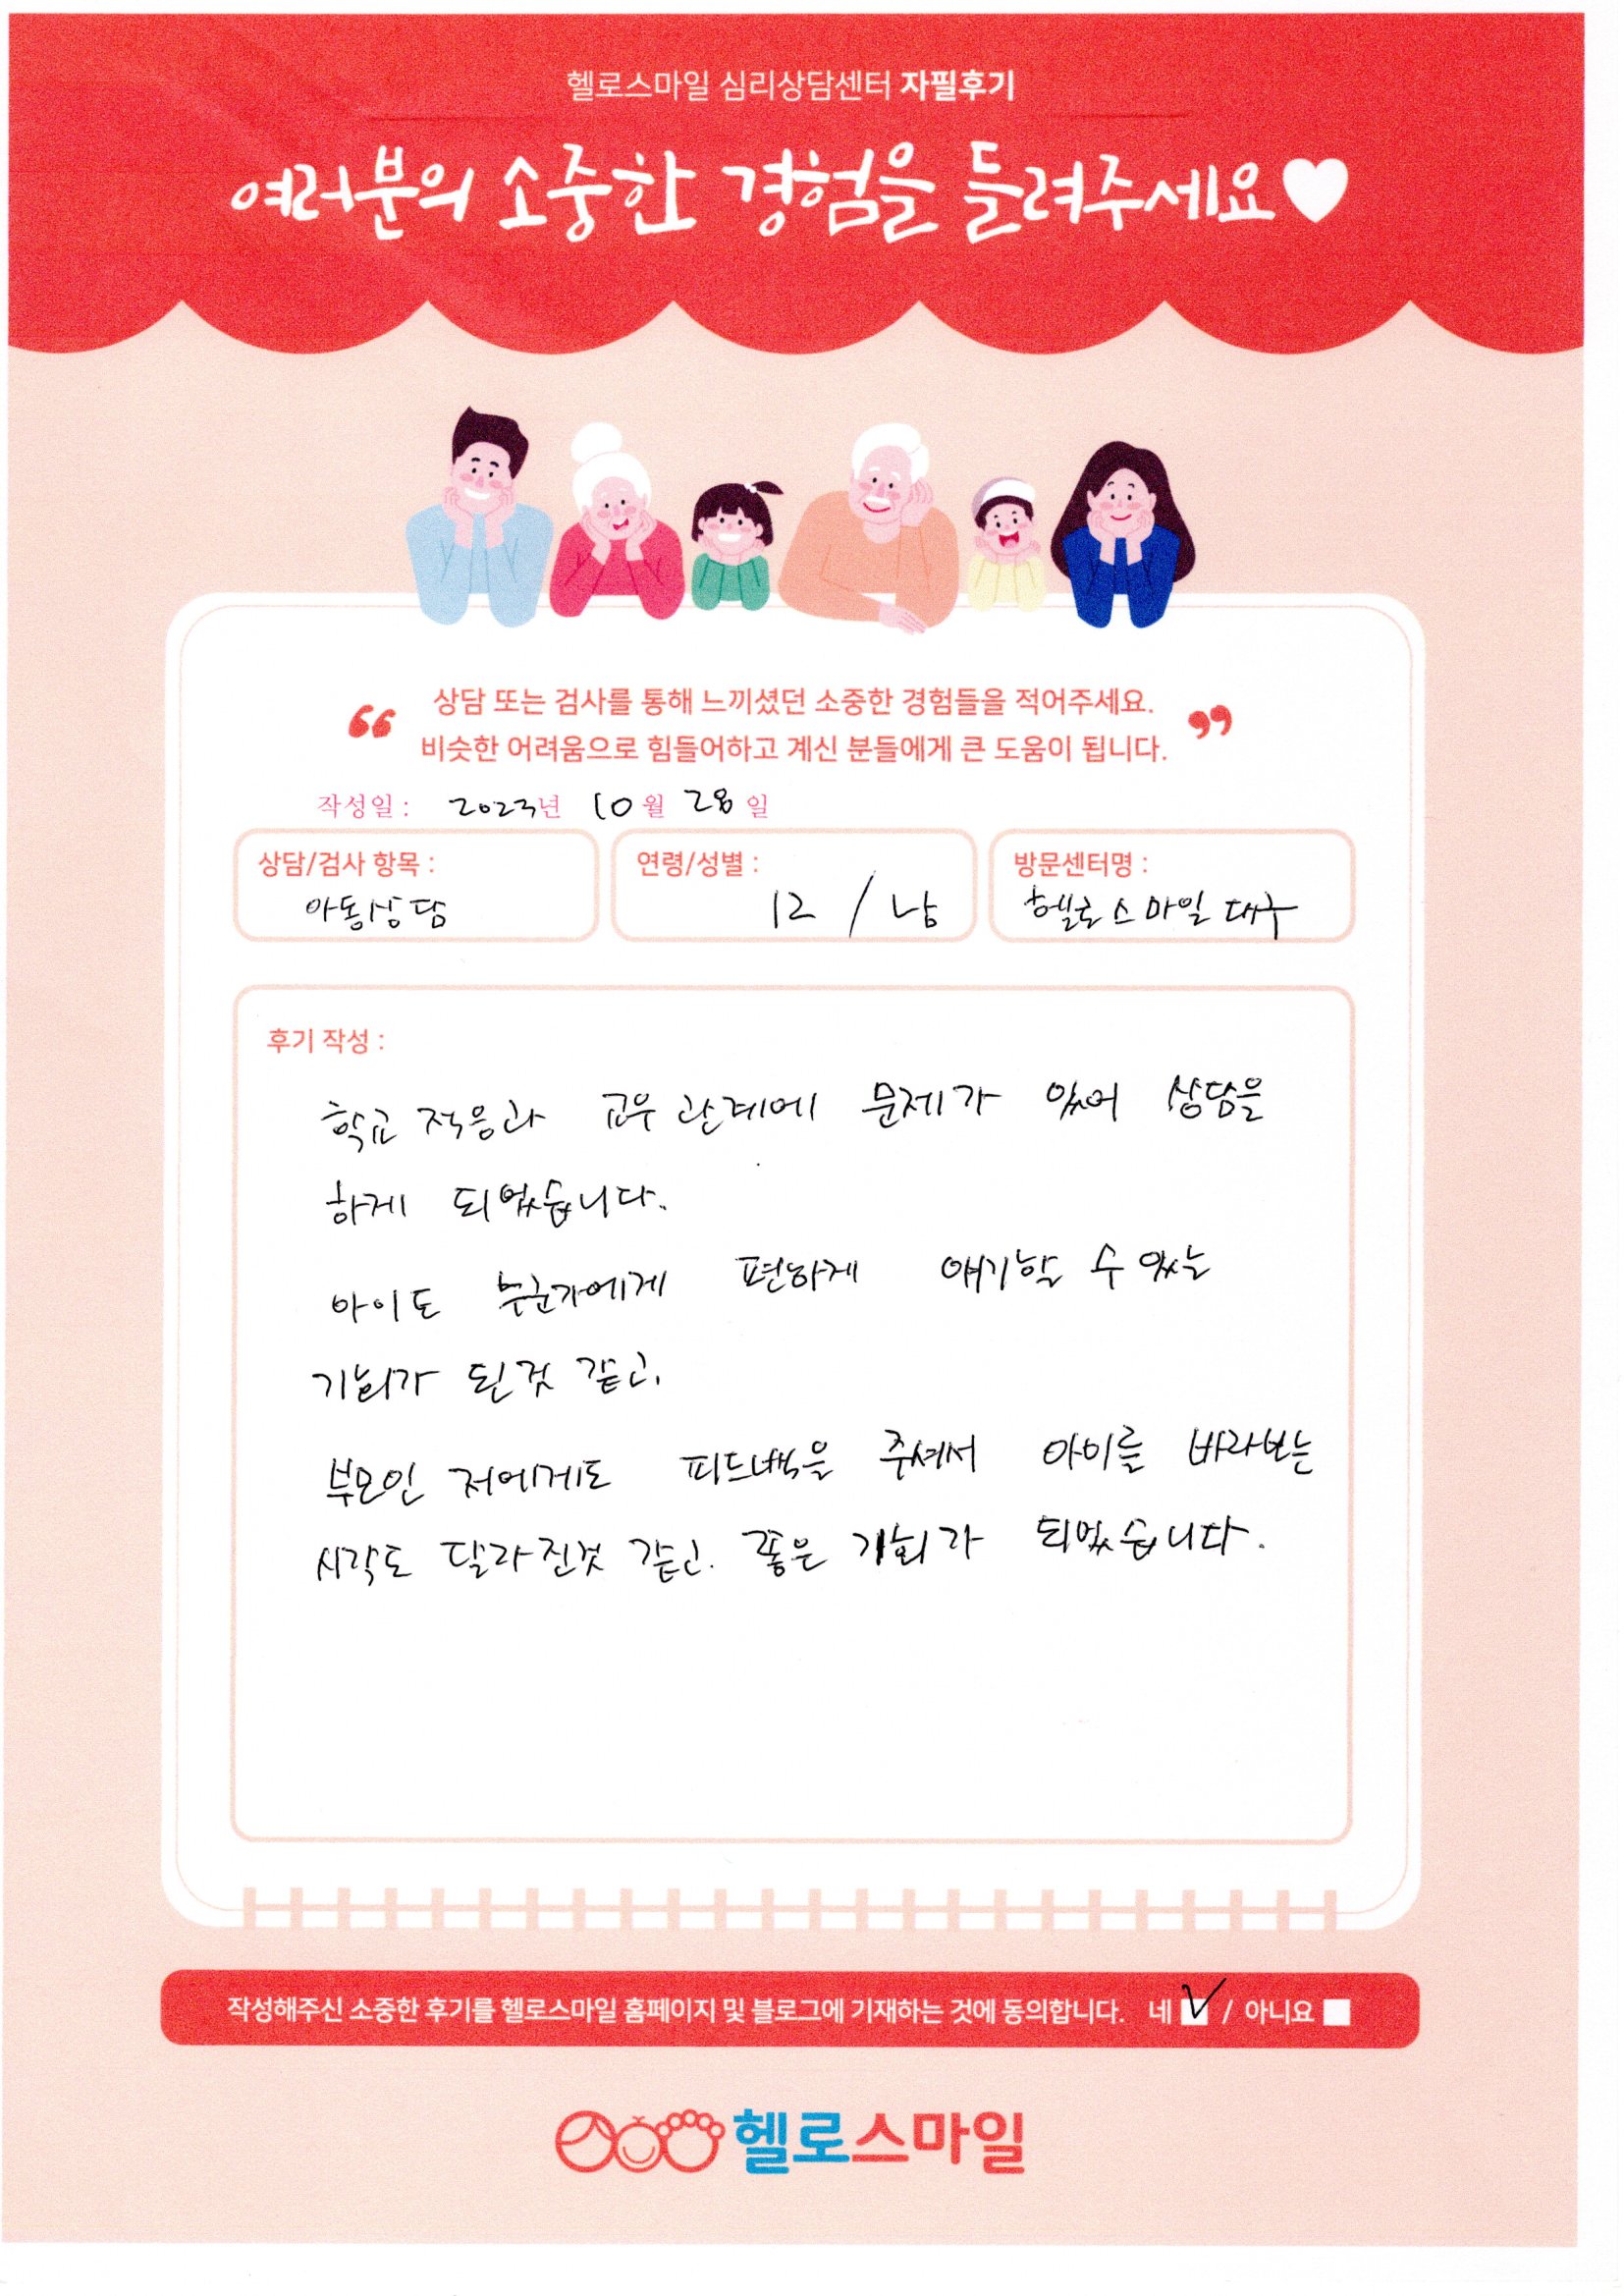 헬로스마일 심리상담센터 자필후기
여러분의 소중한 경험을 들려주세요
상담 또는 검사를 통해 느끼셨던 소중한 경험들을 적어주세요.
비슷한 어려움으로 힘들어하고 계신 분들에게 큰 도움이 됩니다.
작성일 : 2023년 10월 28일
상담/검사 항목 : 아동상담
연령/성별 : 12 / 남
방문센터명 : 헬로스마일 대구
후기 작성 :
학교 적응과 교우 관계에 문제가 있어 상담을
하게 되었습니다.
아이도 누군가에게 편하게 얘기할 수 있는
기회가 된것 같고,
부모인 저에게도 피드백을 주셔서 아이를 바라보는
시각도 달라진것 같고. 좋은 기회가 되었습니다.
작성해주신 소중한 후기를 헬로스마일 홈페이지 및 블로그에 기재하는 것에 동의합니다. 네 / 아니요
헬로스마일